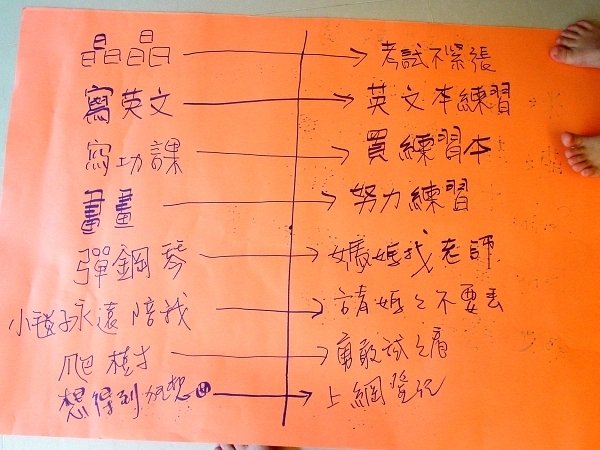 晶晶 → 考試不緊張
寫英文 → 英文本練習
寫功課 → 買練習本
畫畫 → 努力練習
彈鋼琴 → 媽媽找老師
小毯子永遠陪我 → 請媽媽不要丟
爬樹 → 勇敢試試看
想得到 → 上網登記